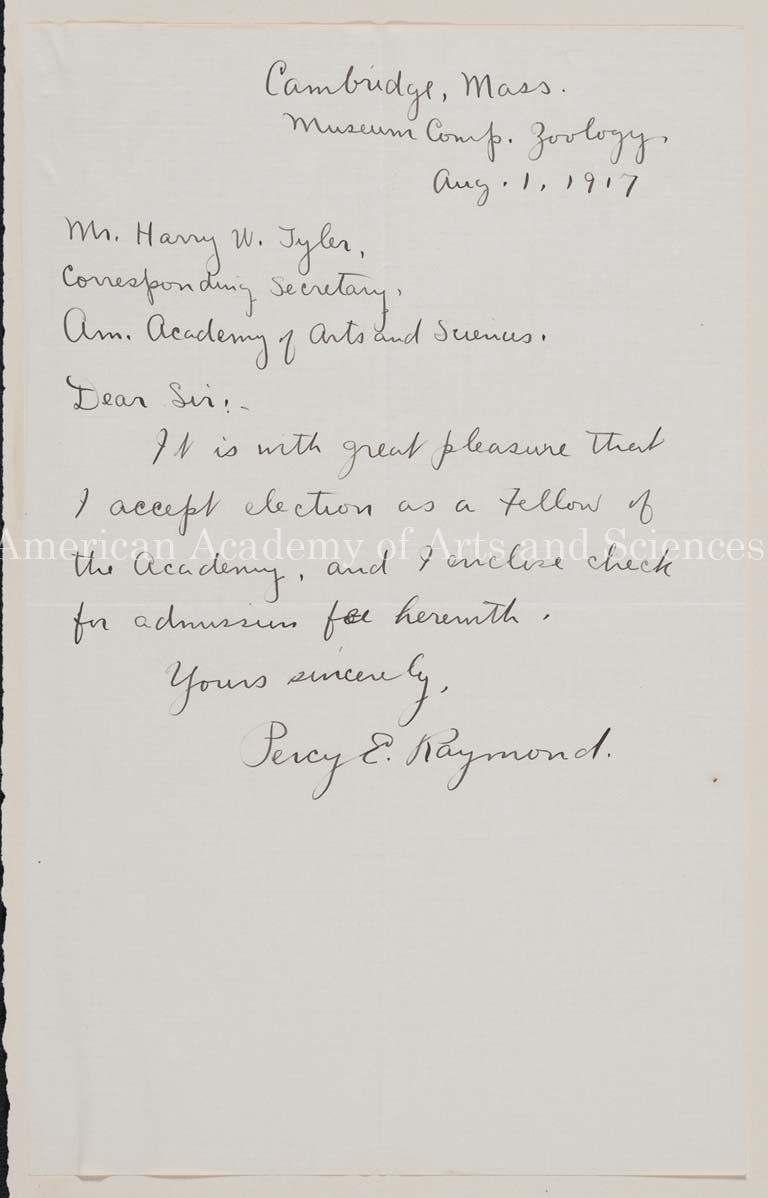 Cambridge, Mass.
Museum Comp. Zoology,
Aug. 1, 1917
Mr. Harry W. Tyler,
Corresponding Secretary,
Am. Academy of Arts and Sciences.
Dear Sir:-
It is with great pleasure that
I accept election as a Fellow of
American Academy of Arts and Sciences
the Academy, and I enclose check
for admission fee herewith.
Yours sincerely,
Percy E. Raymond.